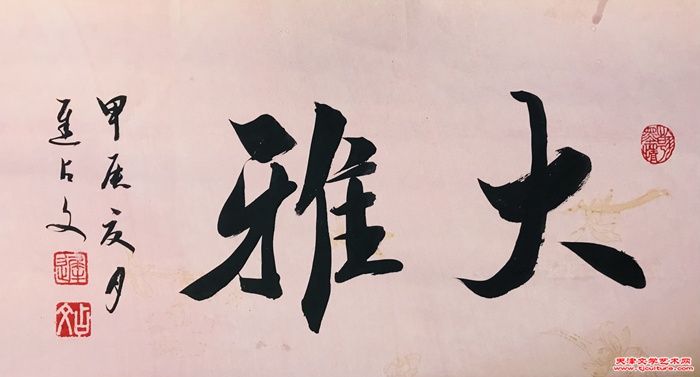 大雅
甲辰夏月
占文
占文
天津文学艺术网
www.tjculture.com